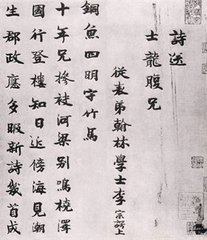 詩送
士龍腹兄
從表弟翰林學士李宗諤上
銅魚四明字竹馬
十年兄摻袂河梁別鳴橈澤
國行登樓知日近傍海見潮
生郡政應多暇新詩幾首成